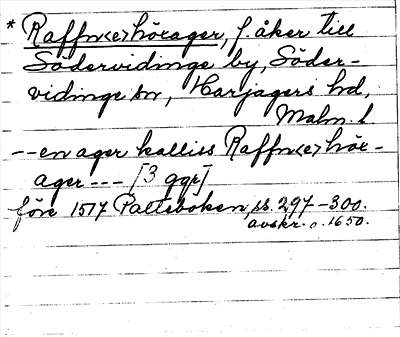 * Raffn<e>hörager, f. åker till
Södervidinge by, Söder-
vidinge sn, Harjagers hd,
Malm. l.
-- en ager kalliss Raffn<e>hör-
ager --- [3 ggr]
före 1517 Palteboken, ss. 297-300.
avskr. o. 1650.